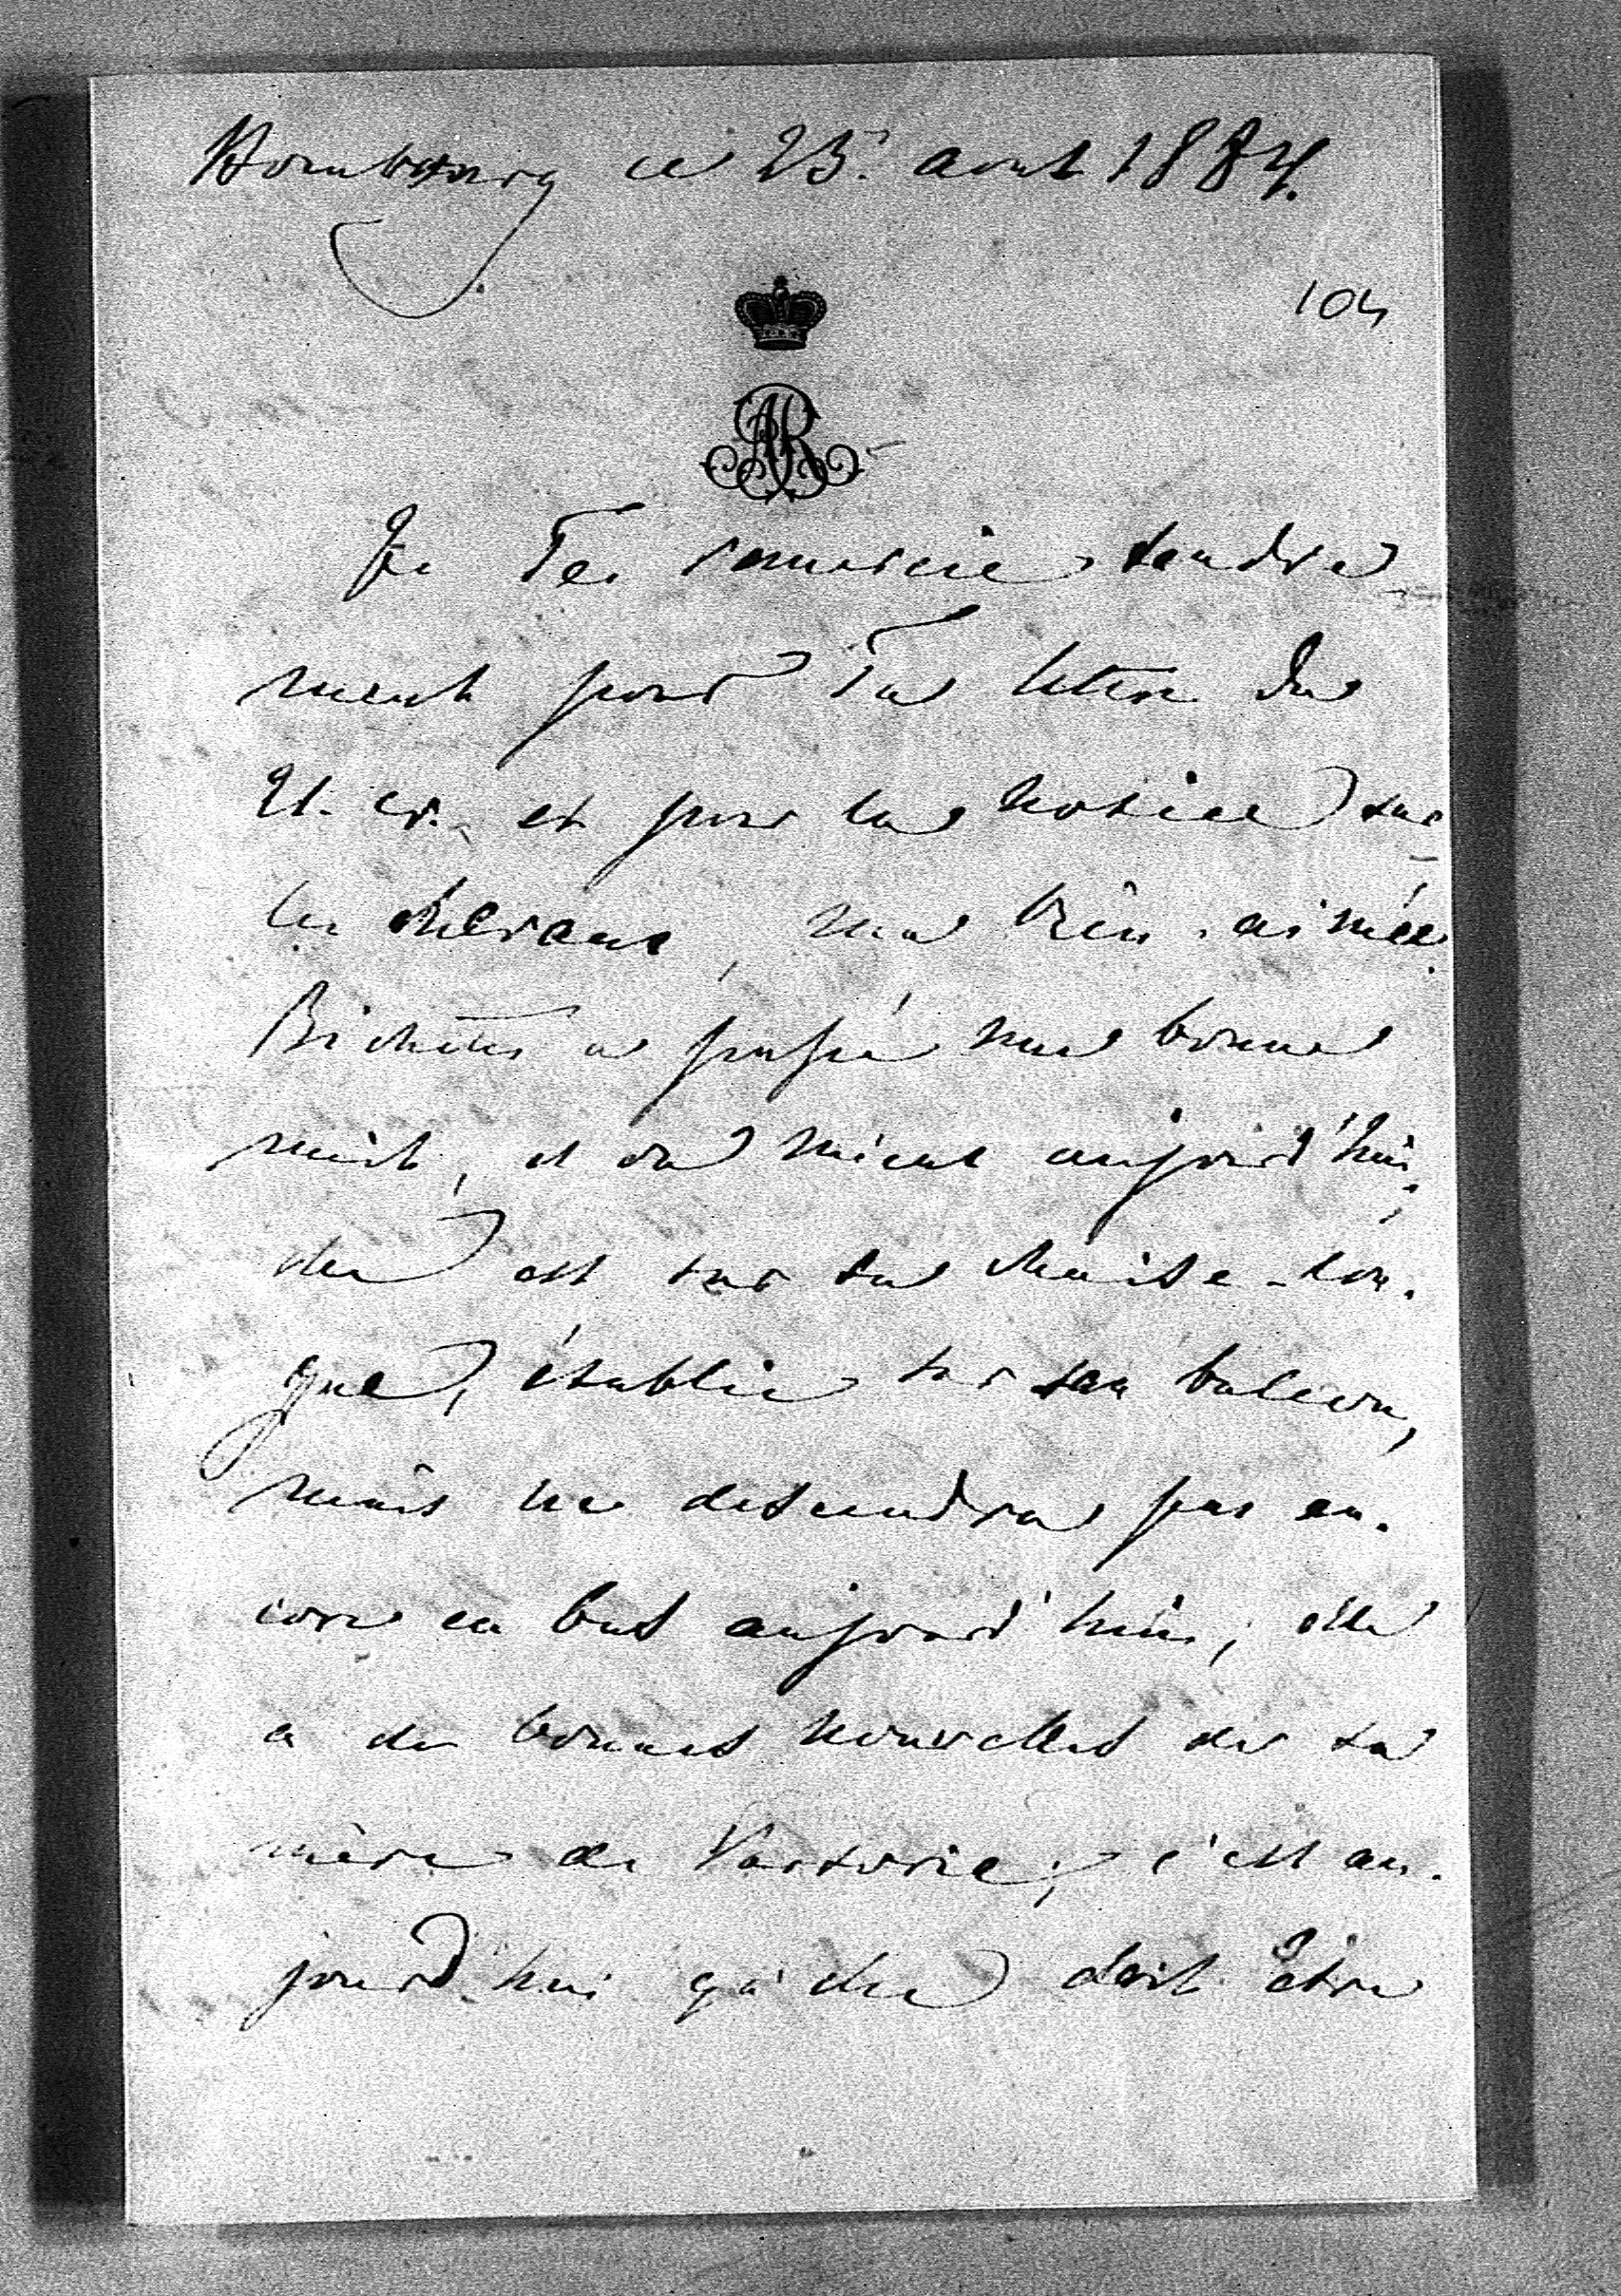 Hombourg ce 25. aout 1884.
104
AR
Je Te remercie tendre
ment pour Ta lettre du
21. cr. et pour la notice sur
les chevaux, ma bien-aimée.
Bichette a passé une bonne
nuit, et va mieux aujourd'hui;
elle est sur sa chaise-lon-
gue, établie sur son balcon,
mais ne descendra pas en-
core en bas aujourd'hui; elle
a de bonnes nouvelles de sa
mère de Varsovie; c'est au-
jourd'hui qu'elle doit être